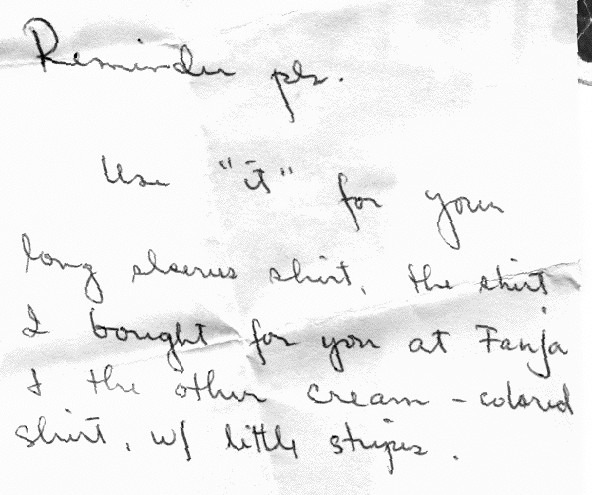 Reminder pls.
Use "it" for your
long sleeves shirt, the shirt
I bought for you at Fanja
& the other cream-colored
shirt, w/ little stripes.